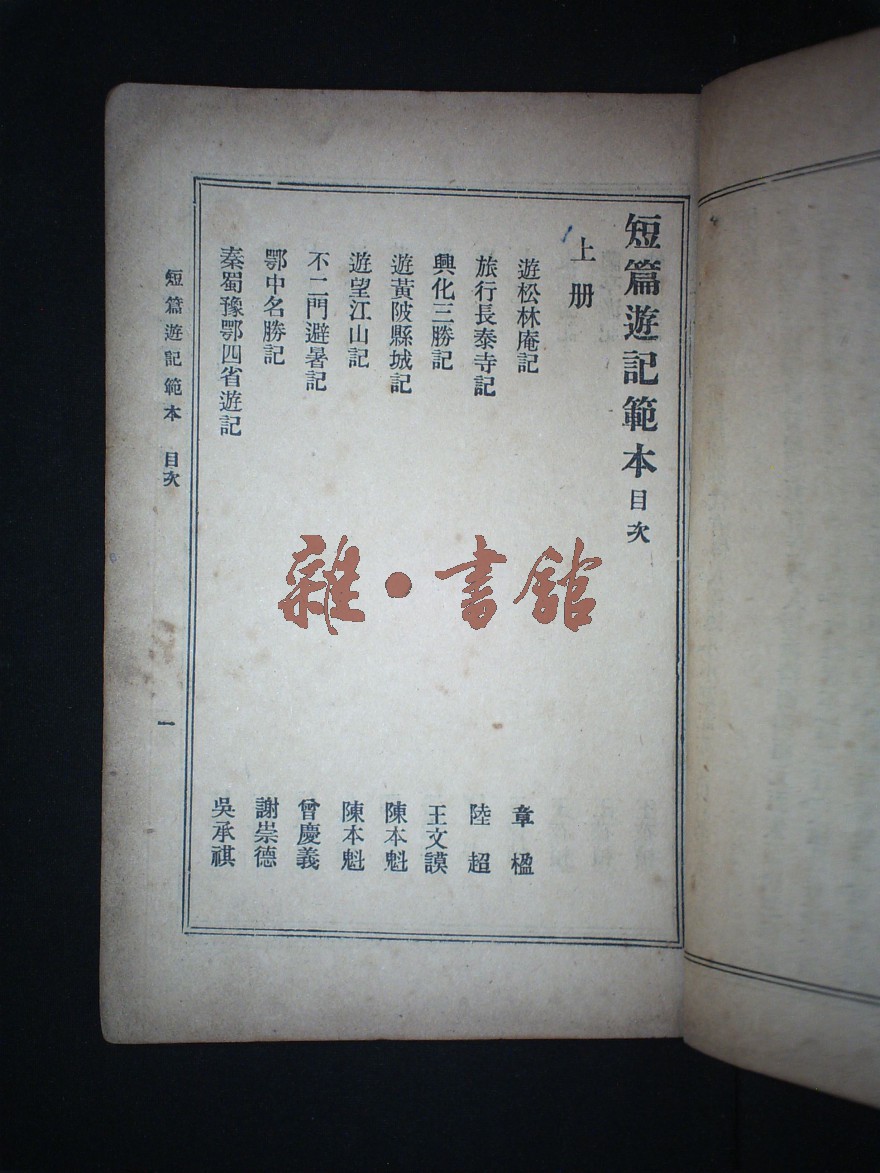 短篇遊記範本目次
上册
遊松林庵記 章楹
旅行長泰寺記 陸超
興化三勝記 王文謨
遊黃陂縣城記 陳本魁
遊望江山記 陳本魁
不二門避暑記 曾慶義
鄂中名勝記 謝崇德
秦蜀豫鄂四省遊記 吳承祺
短篇遊記範本 目次
一
雜·書館